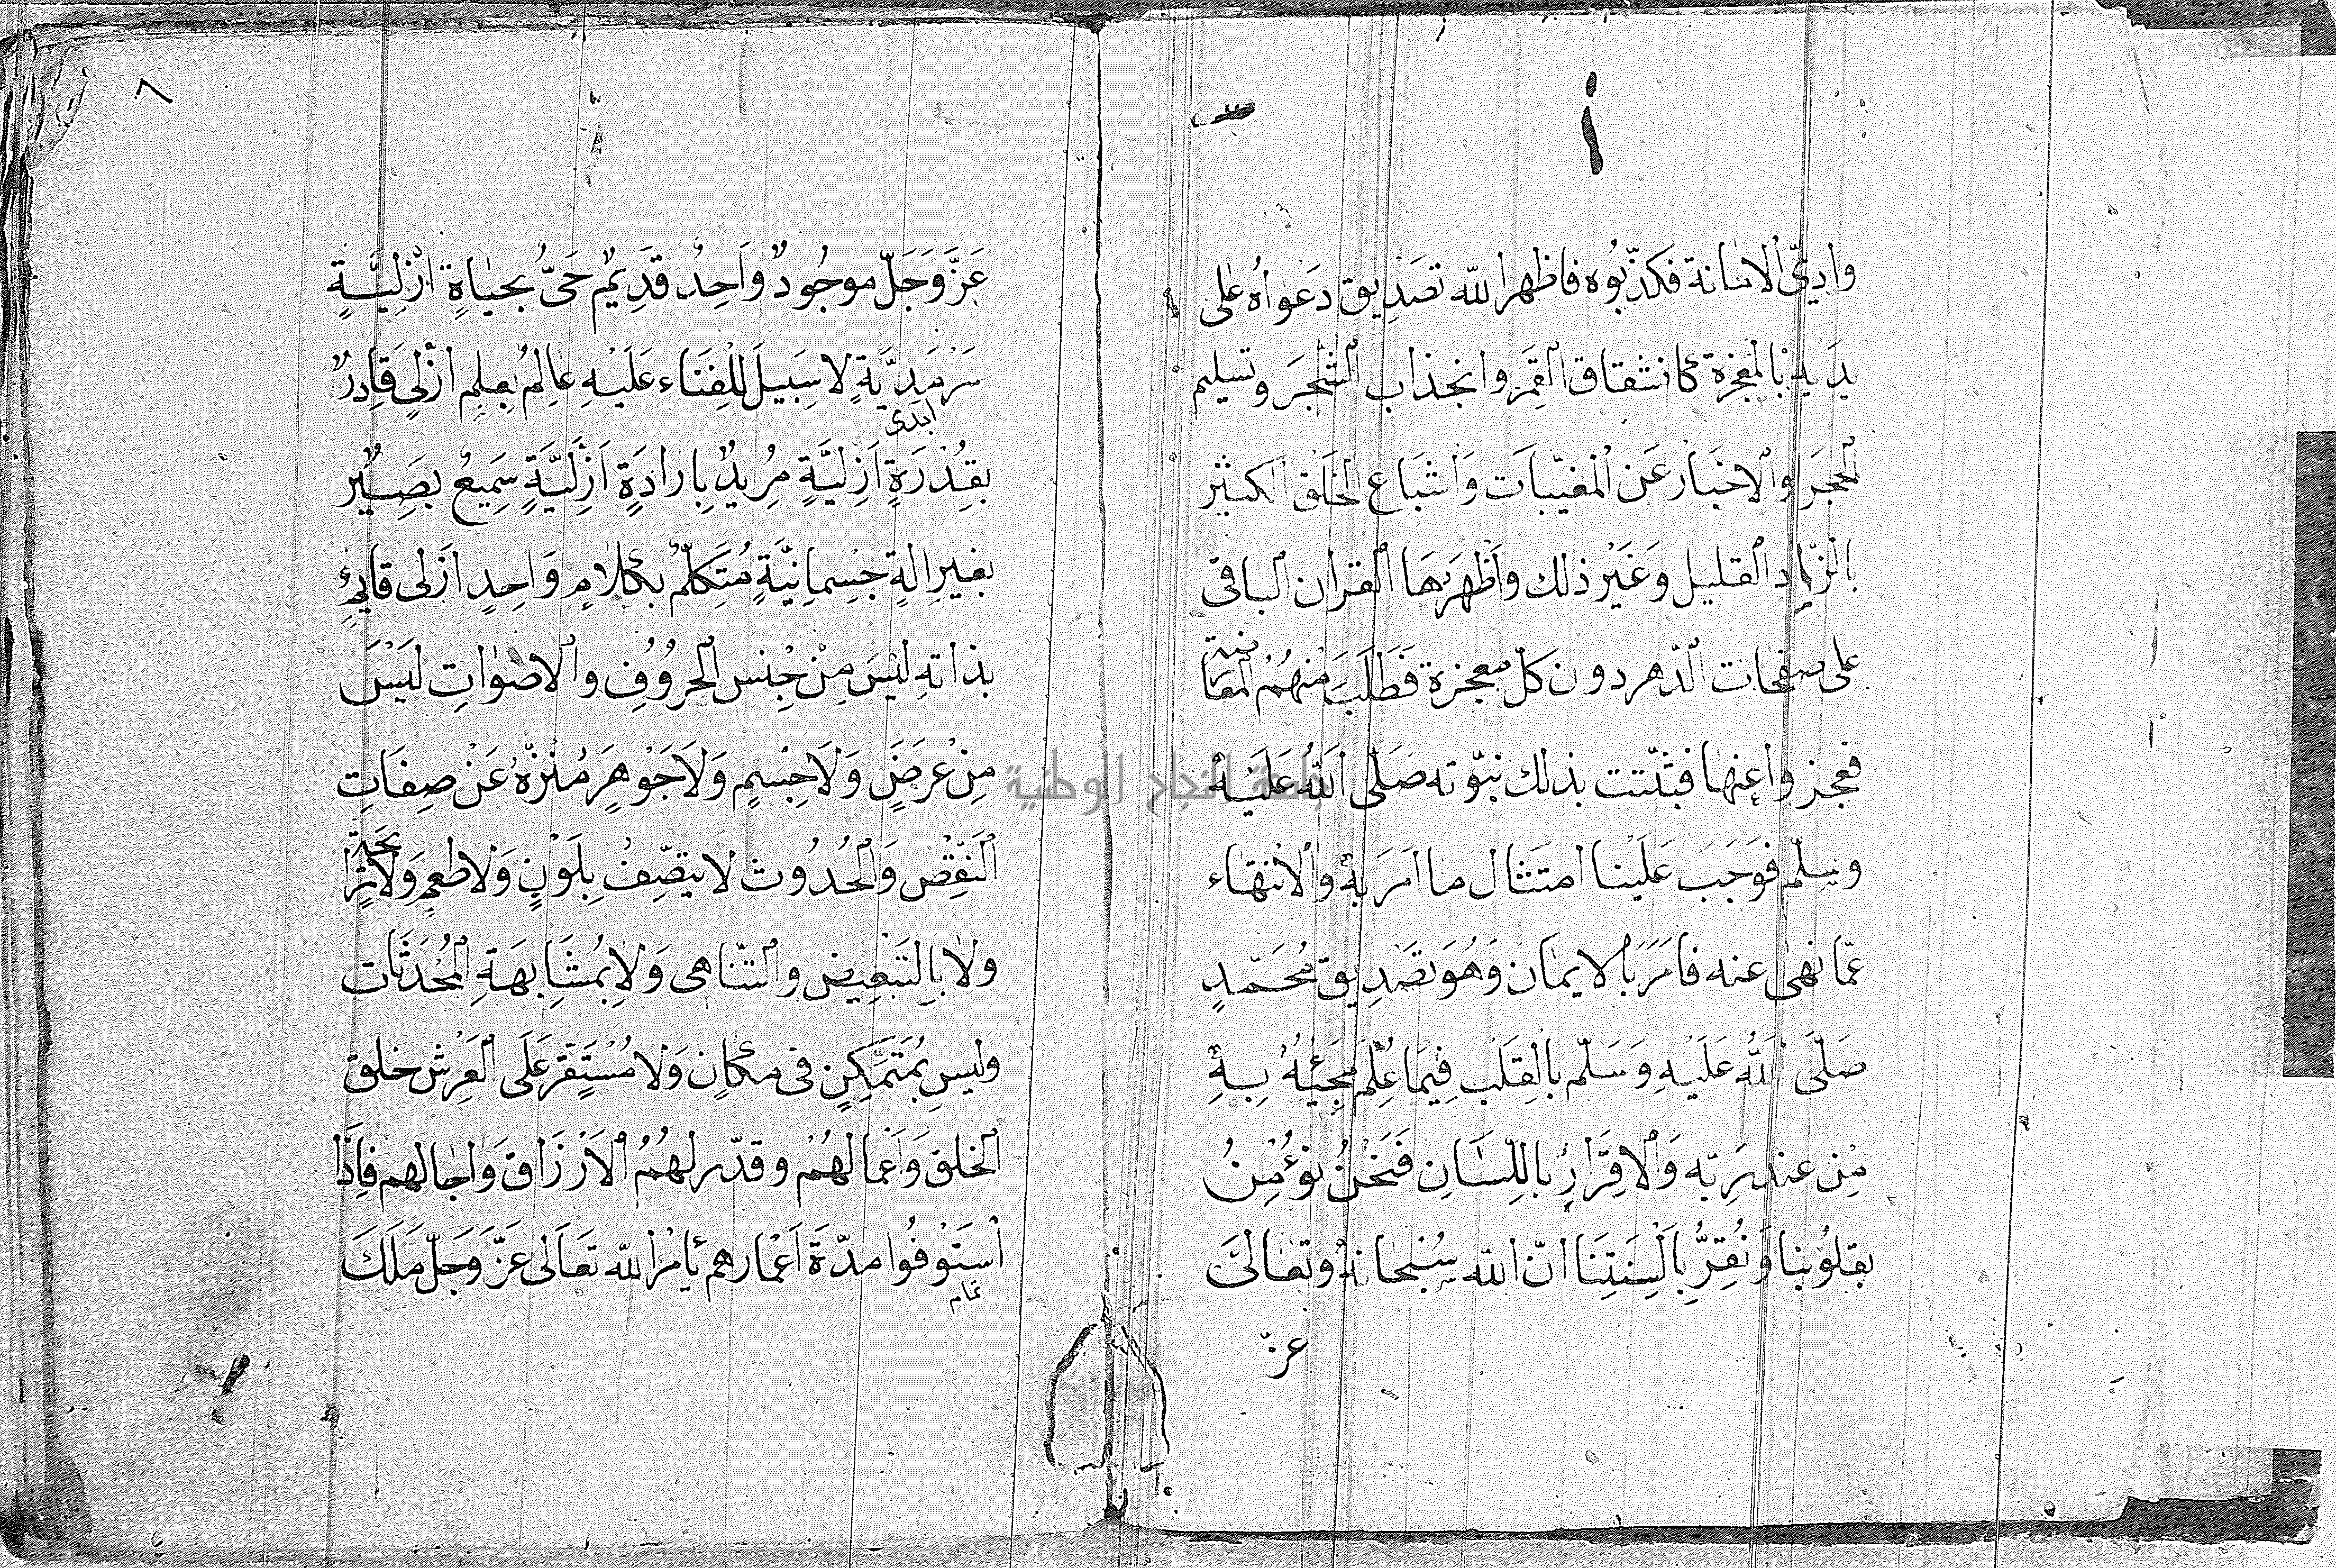 وادعى الامانة فكذّبُوه فاظهر الله تصَدِيق دَعْواهُ على
يدَيه بالمعجزة كانشقاق القَمَر وانجذاب الشّجَر وتسليم
الحجَر والاخبَار عَن المغيّبَات وَاشبَاع الخَلق الكثير
بالزّاد القليل وَغَيْر ذلك وَاَظهَرهَا القران الباقى
على صفحات الدّهر دون كلّ معجزة فَطَلَبَ مْنهُمُ المعَا
رضة
فعجزوا عنها فثبتت بذلك نبوّته صَلّى اللهُ عَلَيْهِ
وسلّم فوَجَبَ عَلَيْنا امتَثال ما اَمَرَ بهِ والانتهَاء
عمّا نهى عنه فاَمَرَ بالايمَان وَهُوَ تصَدِيق مُحَمّدٍ
صَلّى اللهُ عَلَيْهِ وَسَلّم بالقَلب فِيمَا عُلِمَ مَجِيئُهُ بِهِ
مِن عند رَبِّه وَالاِقرَارِ باللِسَانِ فَنَحْنُ نؤْمِنُ
بقلوُبنا وَنُقِرُّ بِاَلْسِنَتِنَا انّ الله سُبْحانهُ وتعَالىَ
عزّ
٨
عَزَّ وَجَلّ موجُودٌ واَحِدٌ قدَيمٌ حَىٌّ بحيَاةٍ ازَلِيَّةٍ
سَرْمَدِيَّةٍ لا سَبيلَ للِفَنَاء عَلَيْهِ عَالِمٌ بعِلِمٍ ازَلىٍ قَادِرٌ
ابدى
بقُدْرَةٍ اَزَلِيَّةٍ مُرِيدٌ بِارادَةٍ اَزَلِيَّةٍ سَمِيعٌ بصَيِرٌ
بغيرِ الةٍ جِسمانِيَّةٍ مُتَكَلّمٌ بكلامٍ وَاحِدٍ اَزَلى قايمٍ
بذاتهِ ليْسَ مِنْ جِنس الحرُوُفِ والاصْوَاتِ ليَسَ
مِنْ عَرَضٍ وَلاَ جِسمٍ وَلاَ جَوْهَرٍ مُنزّهٌ عَنْ صِفَاتِ
النَقْصِ وَالحُدُوث لا يتصِّفُ بِلَوْنٍ وَلا طعمٍ وَلا را
يحة
ولا بالتَبْعِيض والتّناهى وَلا بمُشَابهَةِ المُحْدَثَات
وليسِ بمُتَمَّكِنٍ فى مكانٍ وَلا مُسْتَقرٍّ عَلَى العَرْشِ خلق
الخلق وَاَعمالهُمْ وقدّر لهُمُ الاَرْزَاق وَاٰجالهم فاِذَا
اْستَوْفُوا مدّةَ اَعْمارهم يأمُر الله تعَالى عَزّ وَجَلّ مَلَكَ
تمام